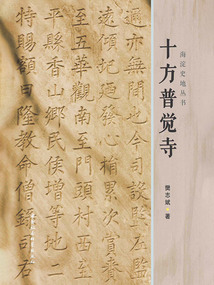 海淀史地丛书
十方普觉寺
樊志斌 著
邇亦無間也今司設監
遠傾圮迺發心捐累次賞賚
至五華觀南至門頭村西至
平縣香山鄉民侯增等地一
特賜額曰隆教命僧錄司右